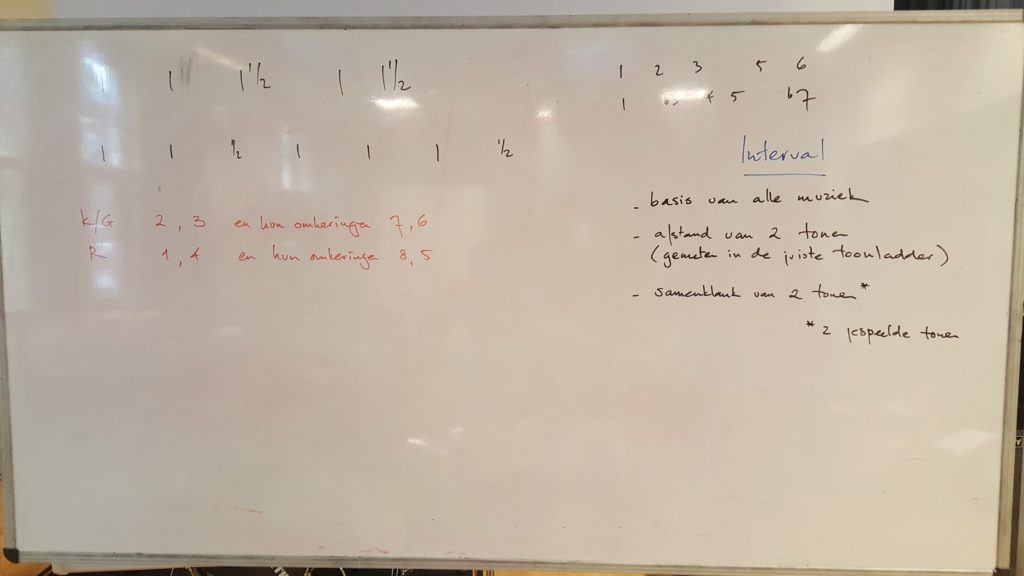 1 1 1½ 1 1½
1 1 ½ 1 1 1 ½
K/G 2, 3 en hun omkeringen 7, 6
R 1, 4 en hun omkeringe 8, 5
1 2 3 5 6
1 b3 4 5 b7
Interval
- basis van alle muziek
- afstand van 2 tonen
(gemeten in de juiste toonladder)
- samenklank van 2 tonen*
* 2 gespeelde tonen